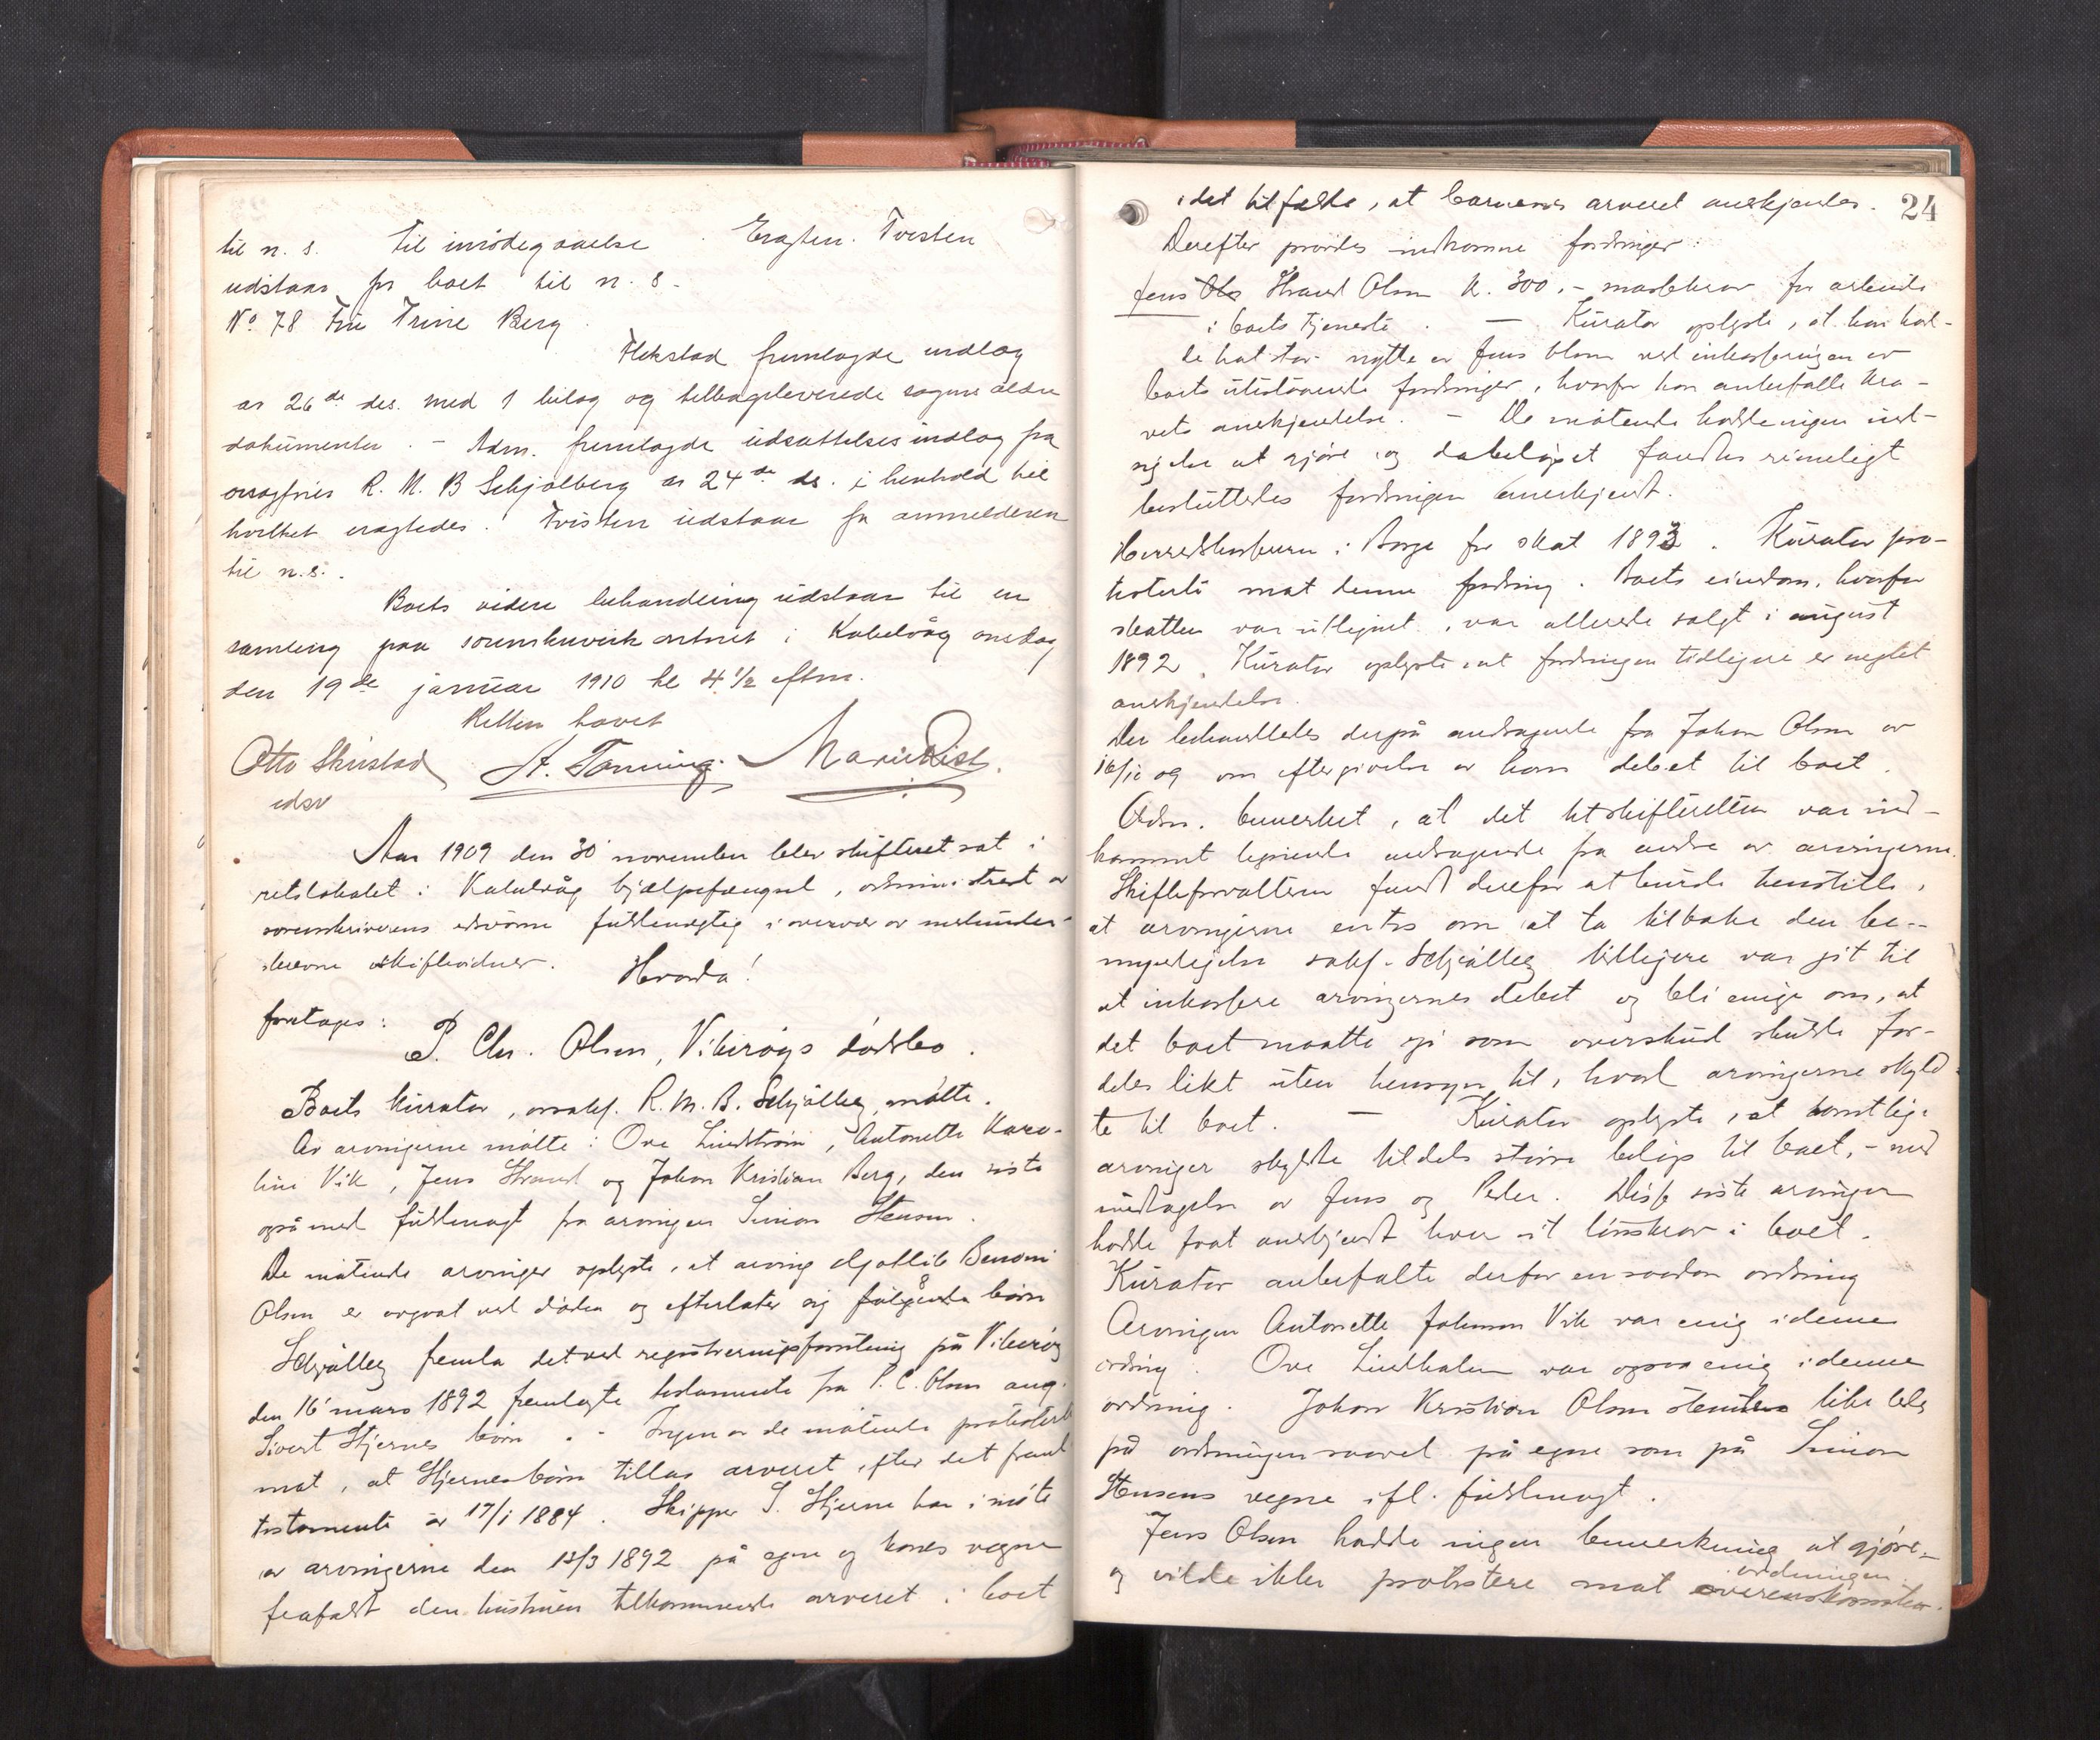 til n. s. Til imødegaaelse . Eragten. Tvisten
udstaar for boet til n. s.
No 78 Fru Trine Berg
Flekstad fremlagde indlæg
av 26de ds. med 1 bilag og tilbageleverede sagens ældre
dokumenter. - Adm. fremlagde udsættelsesindlæg fra
orsagfører R. M. B Schjølberg av 24de ds. i henhold til
hvilket eragtedes: Tvisten udstaar for anmelderen
til n.s..
Boets videre behandling udstaar til en
samling paa sorenskriverkontoret i Kabelvåg onsdag
den 19de januar 1910 kl 4 1/2 eftm.
Retten hævet
Otto Skirstad A. Tønning. Marie Rist.
edsv
Aar 1909 den 30 november blev skifteret sat i
retslokalet i Kabelvåg hjælpefængsel, administrert av
sorenskriverens edsvorne fuldmægtig i overvær av medunder-
skrevne skiftevidner. Hvorda!
foretages:
P. Chr. Olsen, Vikerøgs dødsbo.
Boets kurator, orsakf. R. M. B. Schjølberg, møtte.
Av arvingerne møtte: Ove Lindstrøm, Antonette Karo-
line Vik, Jens Strand og Johan Kristian Berg, den siste
også med fuldmagt fra arvingen Simon Stensen.
De møtende arvinger oplyste, at arving Ágotlib Benoni
Olsen er avgaat ved døden og efterlater sig følgende børn
Schjølberg fremla det ved registreringsforretning på Vikerøg
den 16' mars 1892 fremlagte testamente fra P. C. Olsen ang.
Sivert Stjernes børn. - Ingen av de møtende protesterte
mot, at Stjernes børn tillas arveret efter det freml
testamente av 17/1 1884. Skipper S. Stjerne har i møte
av arvingerne den 15/3 1892 på egne og kones vegne
frafaldt den hustruen tilkommende arveret i boet
24
i det tilfælde, at barnenes arveret anerkjendes.
Derefter prøvedes indkomne fordringer:
Jens Strand Olsen kr. 300,- massekrav for arbeide
i boets tjeneste. — Kurator oplyste, at han had-
de hat stor nytte av Jens Olsen ved inkasseringen av
boets utestaaende fordringer, hvorfor han anbefalte kra-
vets anerkjendelse. - De møtende hadde ingen ind-
sigelse at gjøre og da beløpet fandtes rimeligt
besluttedes fordringen anerkjendt.
Herredskassereren i Borge for skat 1893. Kurator pro-
testerte mot denne fordring. Boets eiendom, hvorfor
skatten var utlignet, var allerede solgt i august
1892. Kurator oplyste, at fordringen tidligere er negtet
anerkjendelse.
Der behandledes derpå andragende fra Johan Olsen av
16/10 09 om eftergivelse av hans debet til boet.
Adm. bemerket, at det til skifteretten var ind-
kommet lignende andragende fra andre av arvingerne.
Skifteforvalteren fandt derfor at burde henstille,
at arvingerne entes om at ta tilbake den be-
myndigelse sakf. Schjølberg tidligere var git til
at inkassere arvingernes debet og bli enige om, at
det boet maatte gi som overskud skulde for-
deles likt uten hensyn til, hvad arvingerne skyld-
te til boet. — Kurator oplyste, at samtlige
arvinger skyldte tildels større beløp til boet, - med
undtagelse av Jens og Peder. Disse siste arvinger
hadde faat anerkjendt hver sit lønskrav i boet.
Kurator anbefalte derfor en saadan ordning
Arvingen Antonette Johnsen Vik var enig i denne
ordning. Ove Lindstrøm var ogsaa enig i denne
ordning. Johan Kristian Olsen stemte likeledes
på ordningen saavel på egne som på Simon
Stensens vegne ifl. fuldmagt.
Jens Olsen hadde ingen bemerkning at gjøre
og vilde ikke protestere mot overenskomsten.
ordningen.